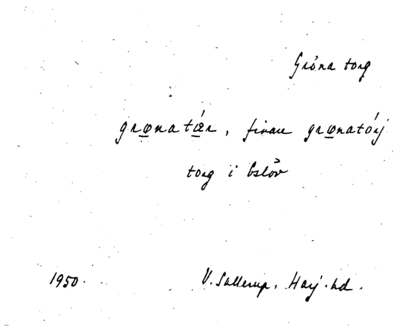 Gröna torg
grønatœ́r, finare grønatórj
torg i Eslöv
1950. V. Sallerup, Harj. hd.